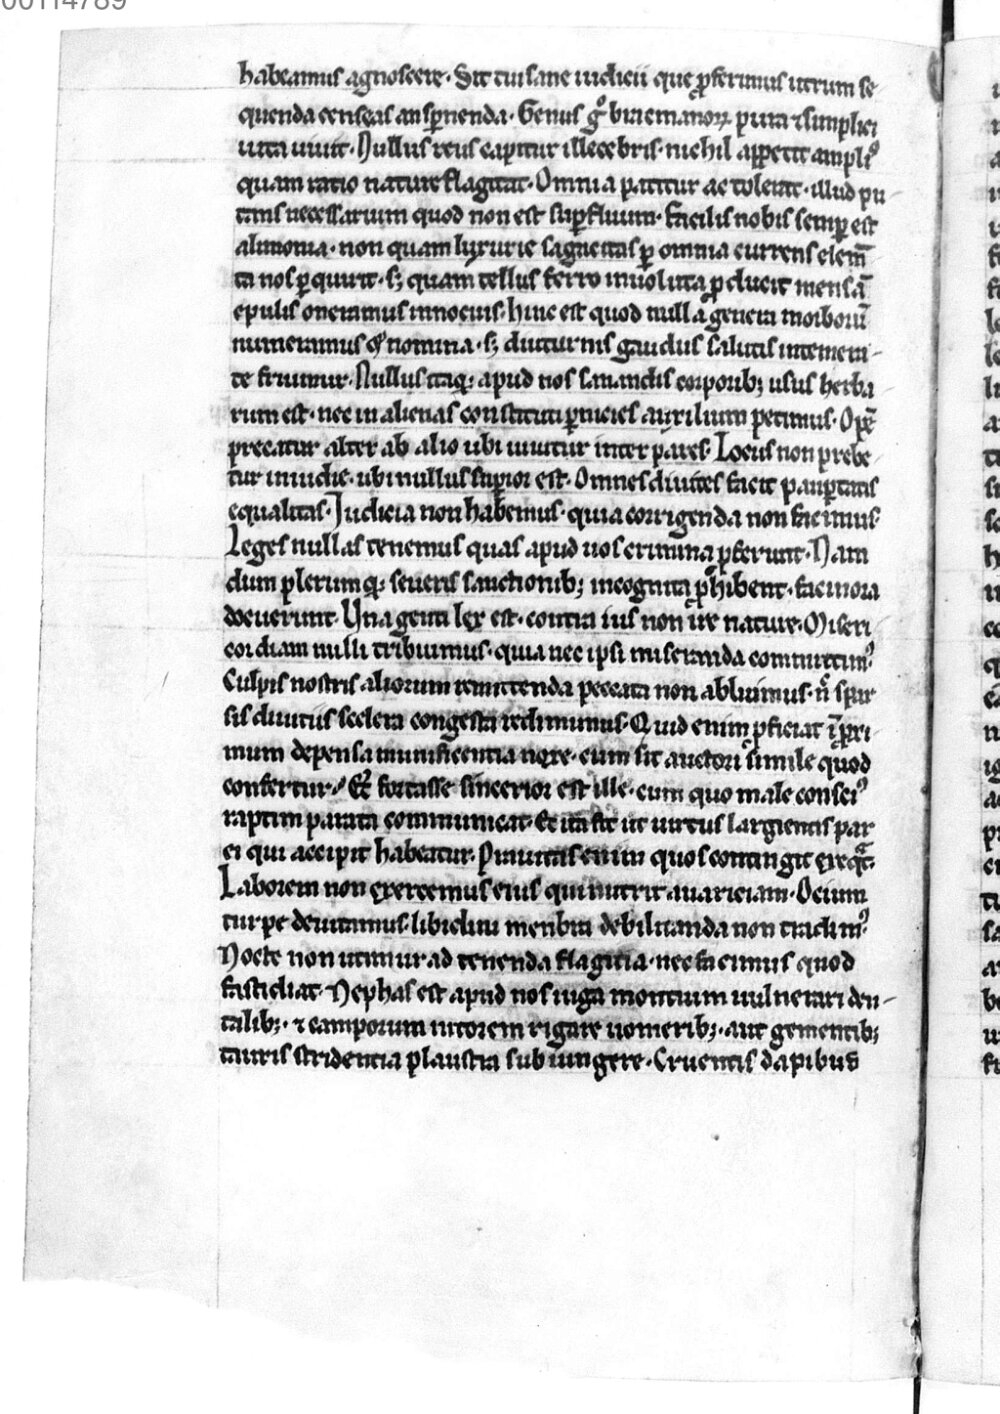 00114789
habeamus agnoscere. Sit tui sane iudicii que ꝓferimus utrum se
quenda censeas an sꝑnenda. Genus gͦ bracmanoꝝ pura ⁊ simplici
uita uiuit. Nullus reus capitur illecebris. nichil appetit ampliꝰ
quam ratio nature flagitat. Omnia patitur ac tolerat. illud pu-
tans necessarium quod non est suꝑfluum. Facilis nobis semꝑ est
alimonia. non quam luxurie sagacitas ꝑ omnia currens elem̄
ta nos ꝑquirit. sꝫ quam tellus ferro inuoluta ꝓducit mensā
epulis oneramus innocuis. hinc est quod nulla genera morborū
numeramus ⁊ nomina. sꝫ diuturnis gaudiis salutis intemera-
te fruimur. Nullus itaqꝫ apud nos sanandis corporibꝫ usus herba
rum est. nec in alienas constituti ꝑnicies auxilium petimus. Opē
precatur alter ab alio ubi uiuitur inter pares. Locus non prebe-
tur inuidie. ubi nullus suꝑior est. Omnes diuites facit pauꝑtatis
equalitas. Iudicia non habemus. quia corrigenda non facimus.
Leges nullas tenemus quas apud uos crimina ꝓferunt. Nam
dum plerumqꝫ seueris sanctionibꝫ incognita ꝓhibent. facinora
docuerunt. Una genti lex est. contra ius non ire nature. Miseri
cordiam nulli tribuimus. quia nec ipsi miseranda committimꝰ.
Culpis nostris aliorum remittenda peccata non abluimus. n̄ spar
sis diuitiis scelera congesta redimimus. Quid enim ꝓficiat
mum depensa munificentia nqre. cum sit auctori simile quod
confertur. Et fortasse sincerior est ille. cum quo male consciꝰ
raptim parata communicat. Et ita fit ut uirtus largientis par
ei qui accipit habeatur. Priuitas enim quos contingit exeqͣt.
Laborem non exercemus eius qui nutrit auariciam. Ocium
turpe deuitamus. libidini menbra debilitanda non tradimꝰ.
Nocte non utimur ad tenenda flagitia. nec facimus quod
fastidiat. Nephas est apud nos iuga montium uulnerari den-
talibꝫ. ⁊ camporum nitorem rigare uomeribꝫ. aut gementibꝫ
tauris stridentia plaustra subiungere. Cruentis dapibus